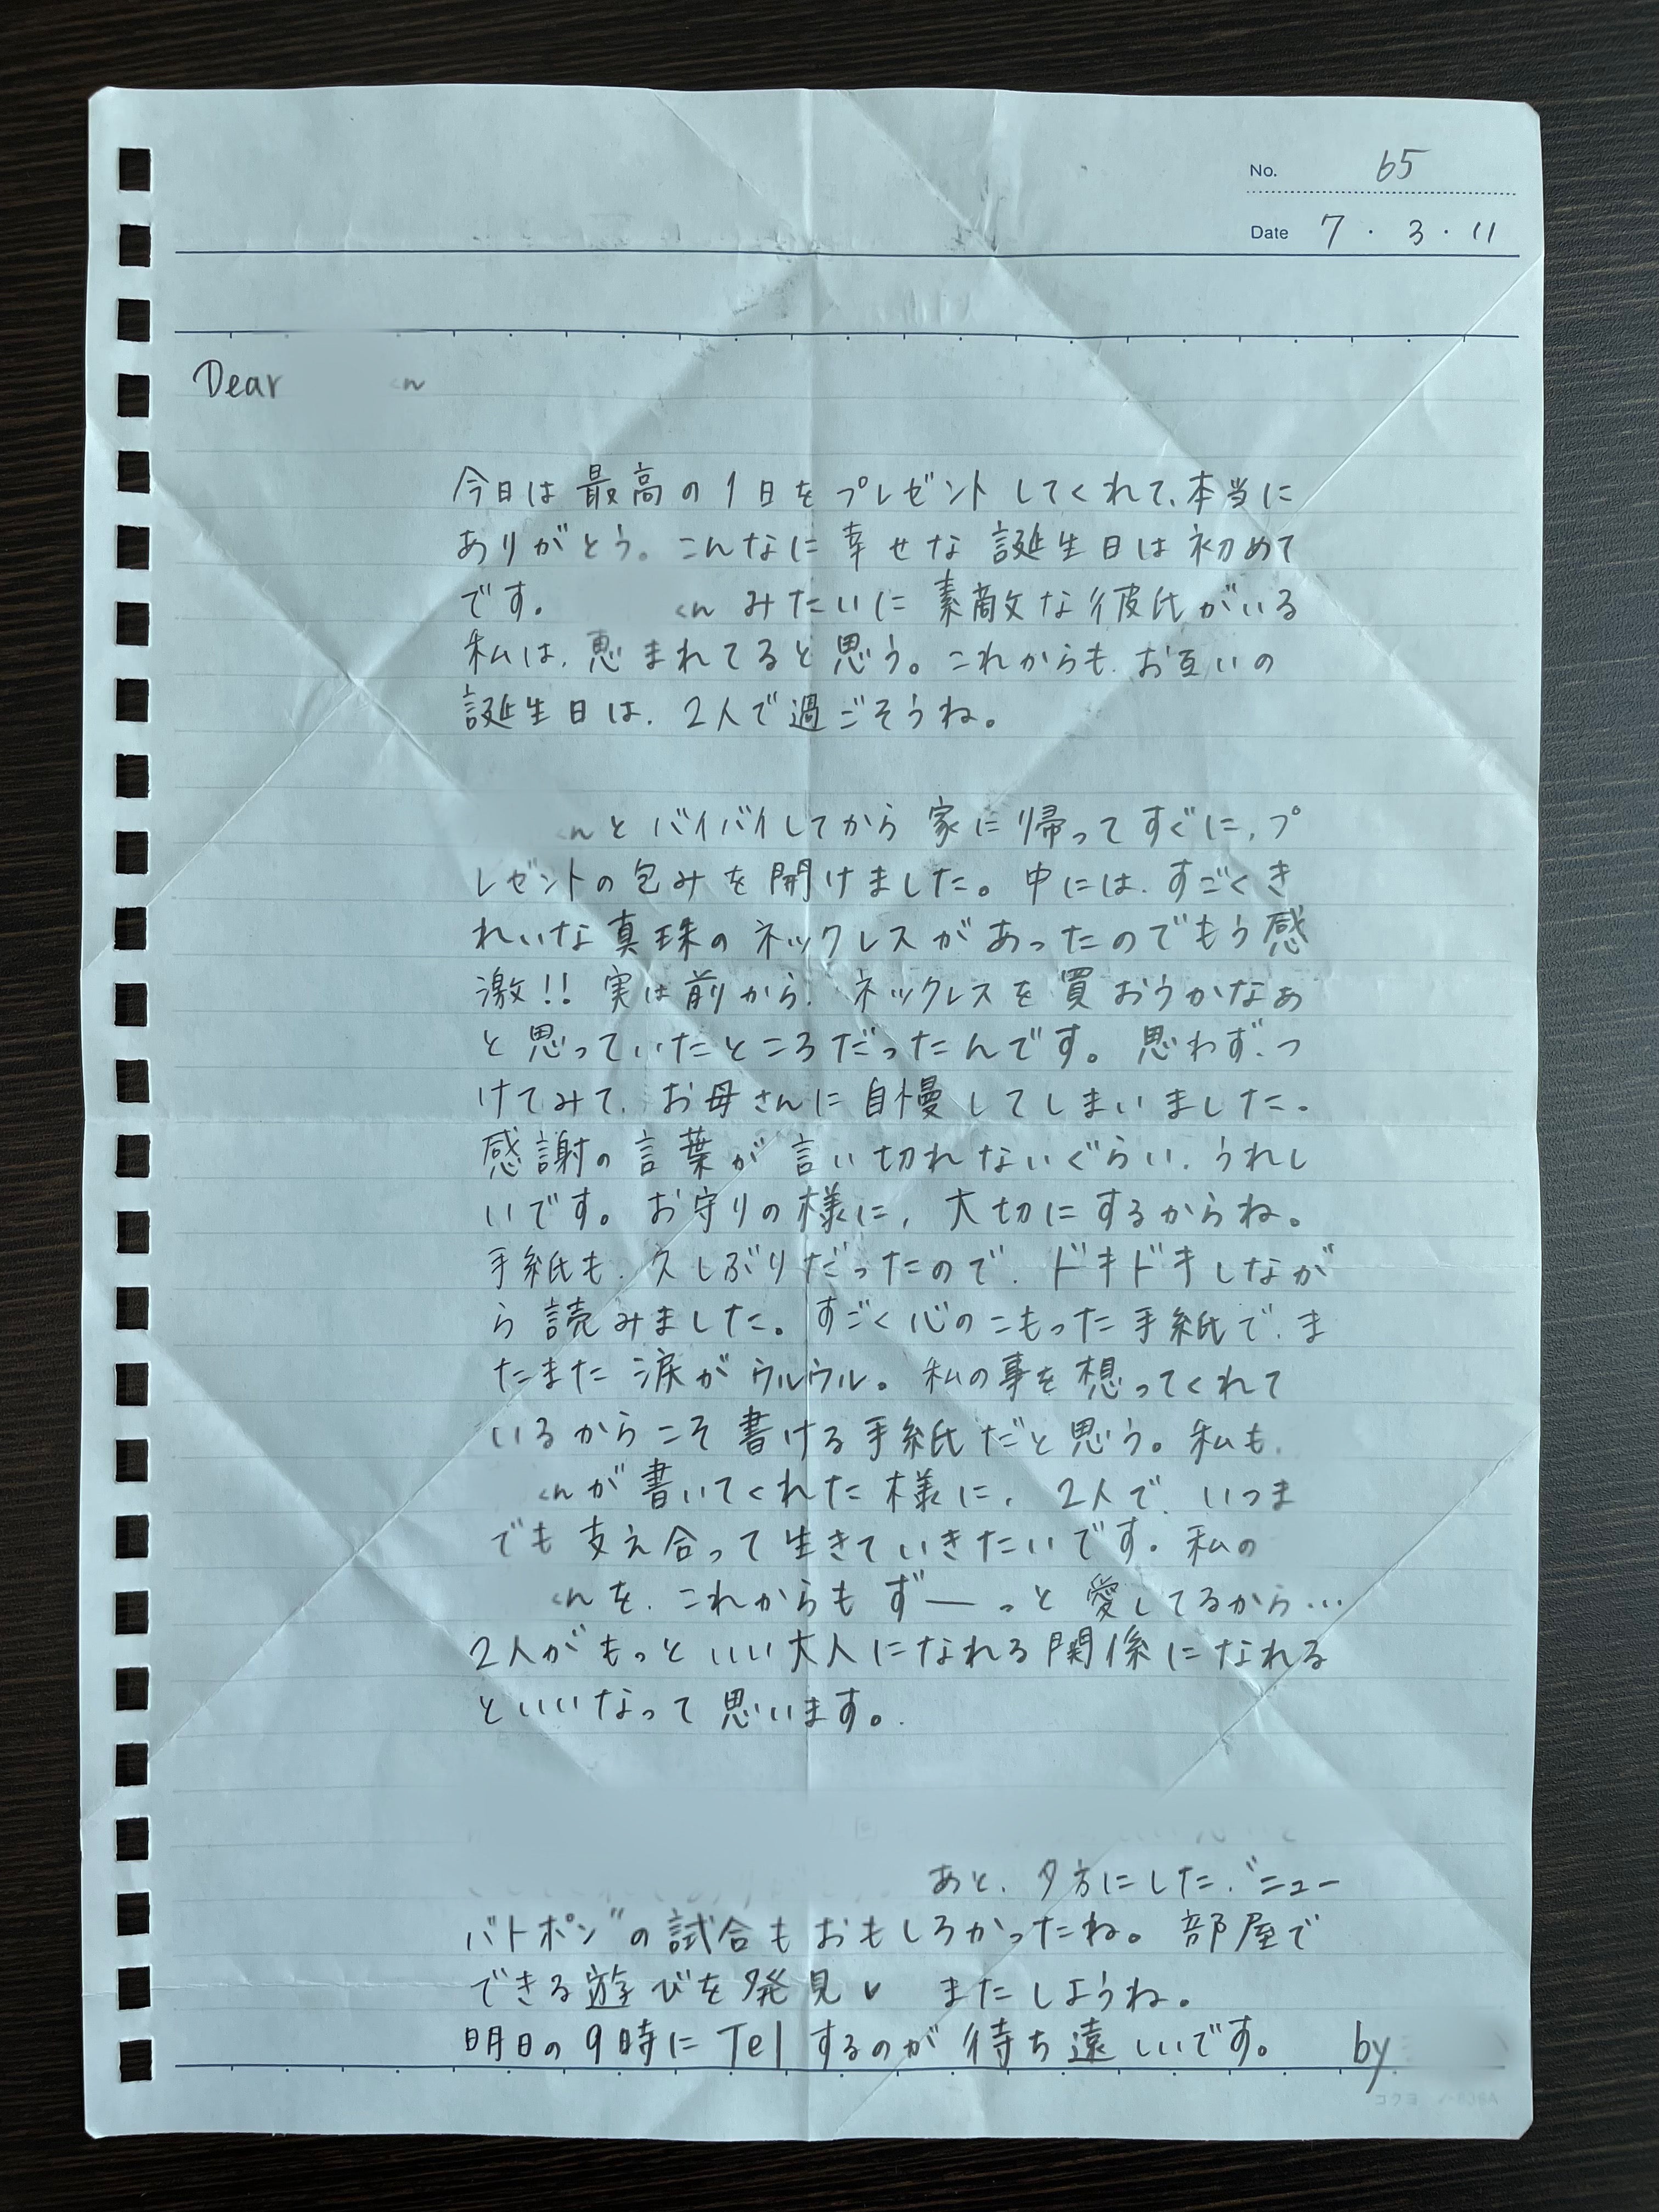 No. 65
Date 7・3・11
Dear くん
今日は最高の1日をプレゼントしてくれて、本当に
ありがとう。こんなに幸せな誕生日は初めて
です。くんみたいに素敵な彼氏がいる
私は、恵まれてると思う。これからも、お互いの
誕生日は、2人で過ごそうね。
くんとバイバイしてから家に帰ってすぐに、プ
レゼントの包みを開けました。中には、すごくき
れいな真珠のネックレスがあったのでもう感
激!! 実は前から、ネックレスを買おうかなぁ
と思っていたところだったんです。思わず、つ
けてみて、お母さんに自慢してしまいました。
感謝の言葉が言い切れないぐらい、うれし
いです。お守りの様に、大切にするからね。
手紙も、久しぶりだったので、ドキドキしなが
ら読みました。すごく心のこもった手紙で、ま
たまた涙がウルウル。私の事を想ってくれて
いるからこそ書ける手紙だと思う。私も、
くんが書いてくれた様に、2人で、いつま
でも支え合って生きていきたいです。私の
くんを、これからもずーっと愛してるから…
2人がもっといい大人になれる関係になれる
といいなって思います。
あと、夕方にした、"ニュー
バトポン"の試合もおもしろかったね。部屋で
できる遊びを発見♥ またしようね。
明日の9時にTelするのが待ち遠しいです。 by